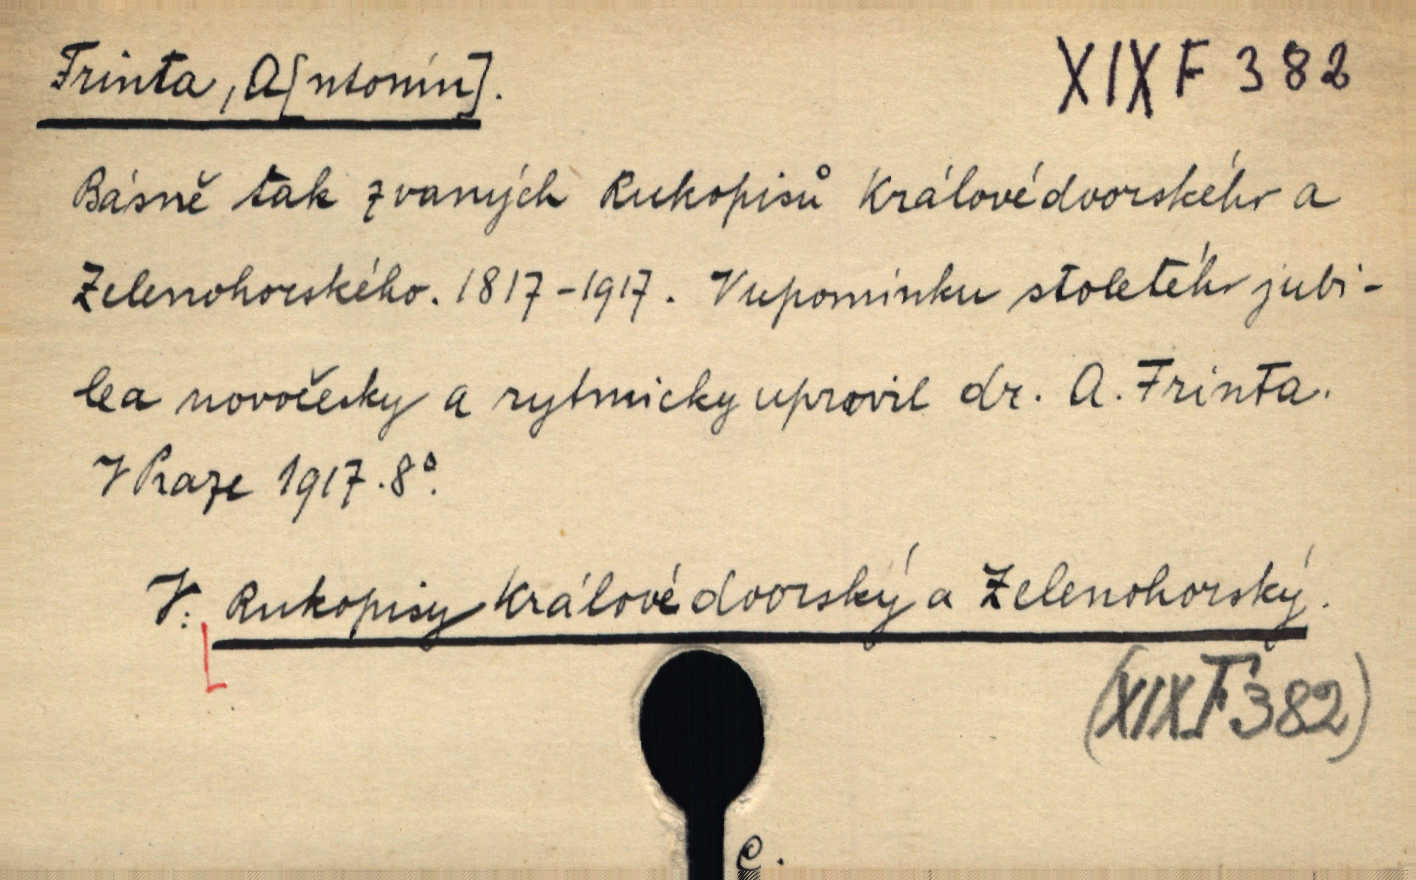 Frinta, A[ntonín].
XIX F 382
Básně tak zvaných Rukopisů Královédvorského a
Zelenohorského. 1817-1917. V upomínku stoletého jubi-
lea novočesky a rytmicky upravil dr. A. Frinta.
V Praze 1917. 8°.
V: Rukopisy Královédvorský a Zelenohorský.
(XIX F 382)
C.